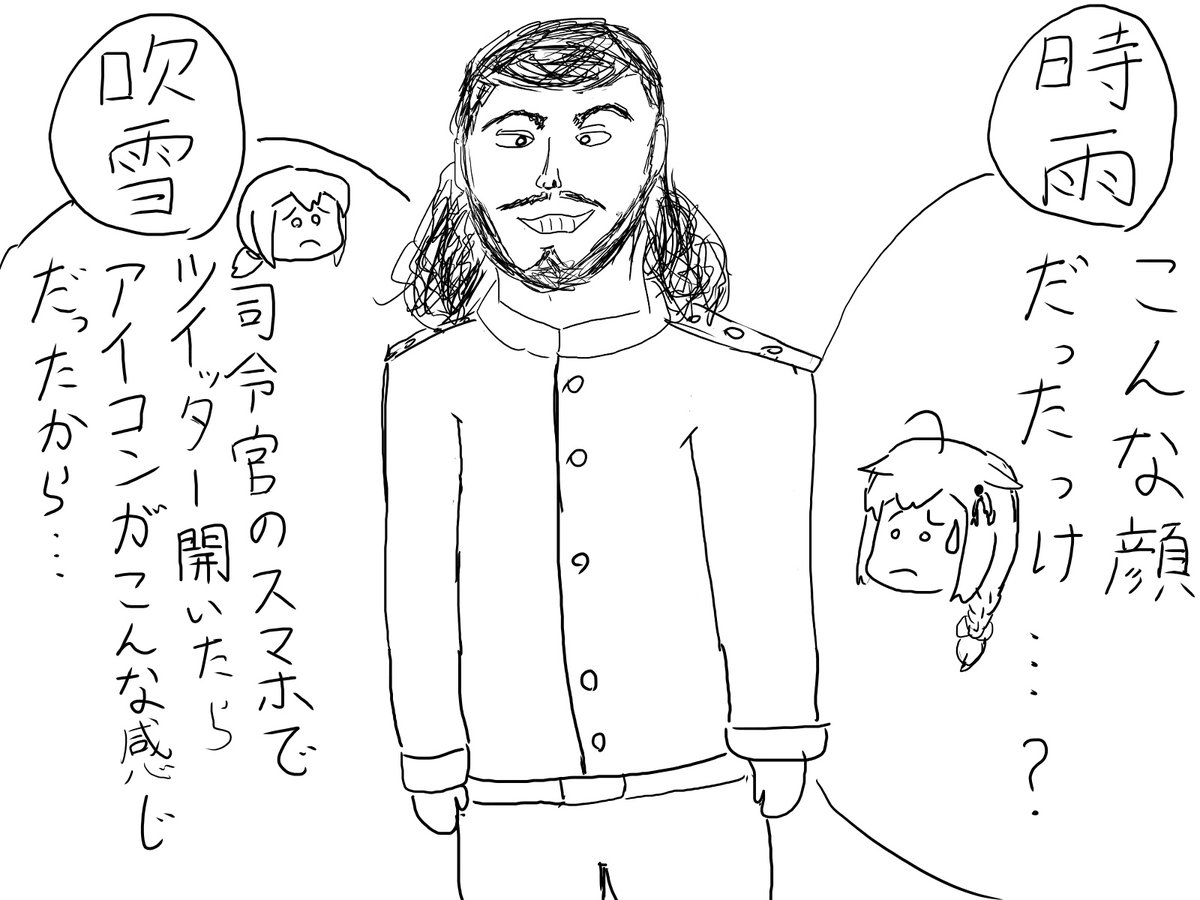 時雨
こんな顔
だったっけ…?
吹雪
司令官のスマホで
ツイッター開いたら
アイコンがこんな感じ
だったから…